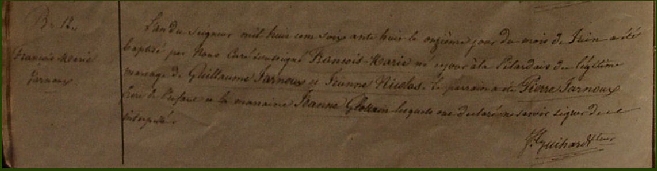 B. 12.
François Marie
Jarnoux
L'an du Seigneur mil huit cent soixante huit le onzième jour du mois de Juin a été
baptisé par Nous Curé soussigné François-Marie né ce jour à la du légitime
mariage de Guillaume Jarnoux et Jeanne Nicolas. Le parrain a été Pierre Jarnoux
frère de l'enfant et la marraine Jeanne lesquels ont déclaré ne savoir signer de ce
interpellés
Guihard